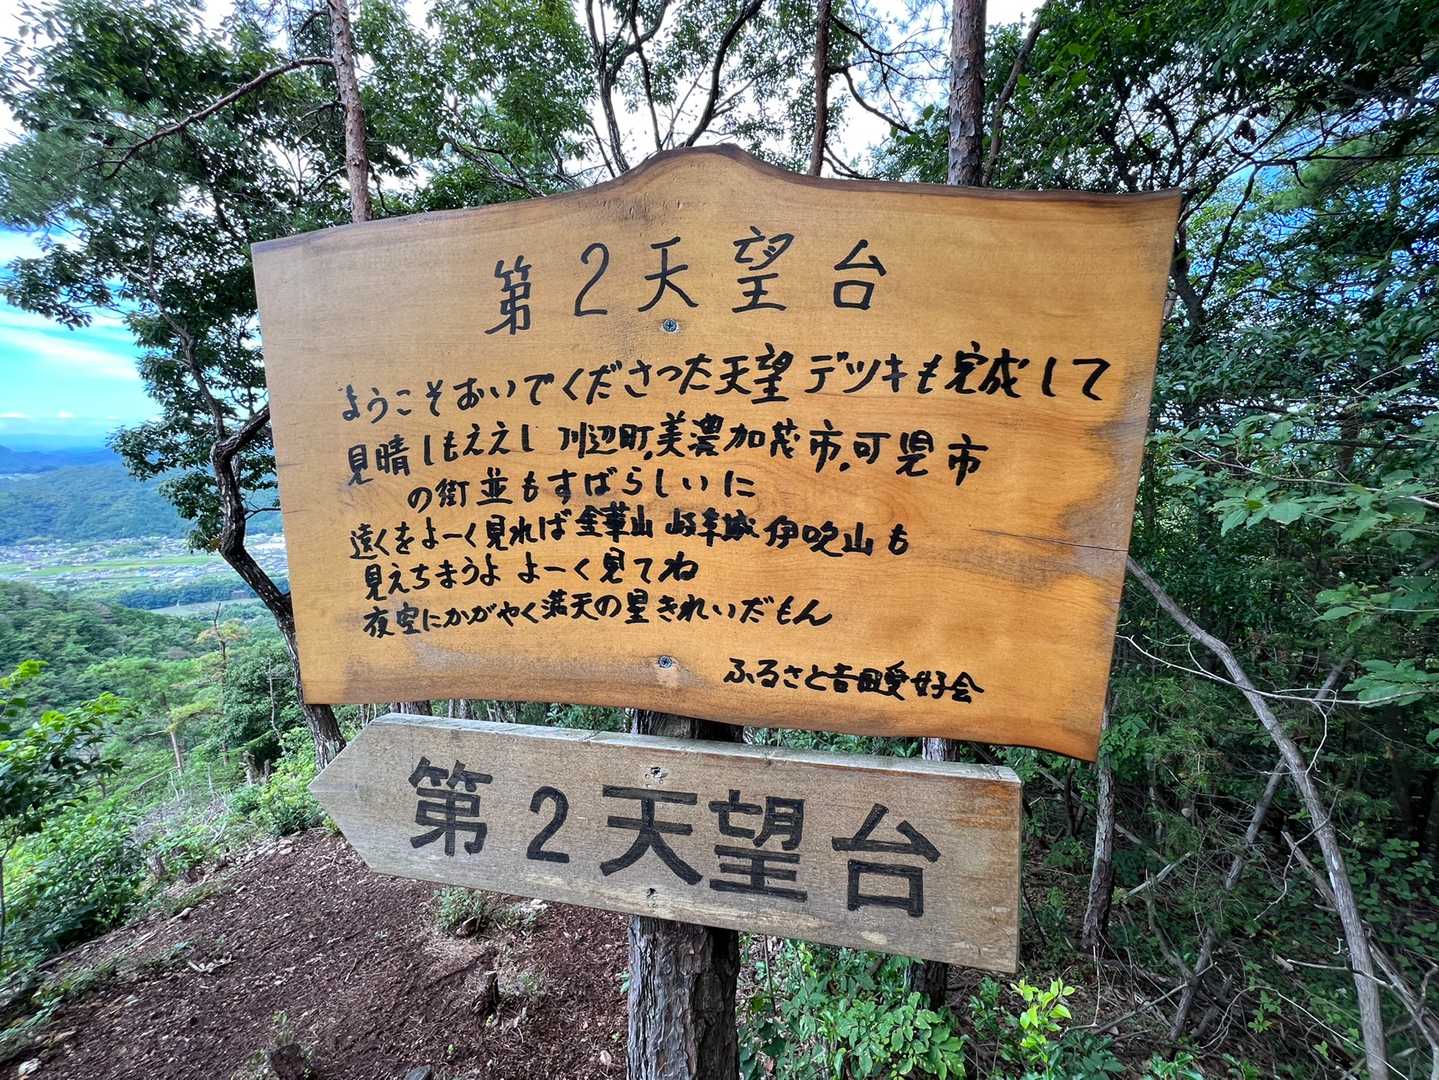 第2天望台
ようこそおいでくださった天望デッキも完成して
見晴しもええし 川辺町,美濃加茂市,可児市
の街並もすばらしいに
遠くをよーく見れば 金華山 岐阜城 伊吹山も
見えちまうよ よーく見てね
夜空にかがやく満天の星きれいだもん
ふるさと吉田愛好会
第2天望台